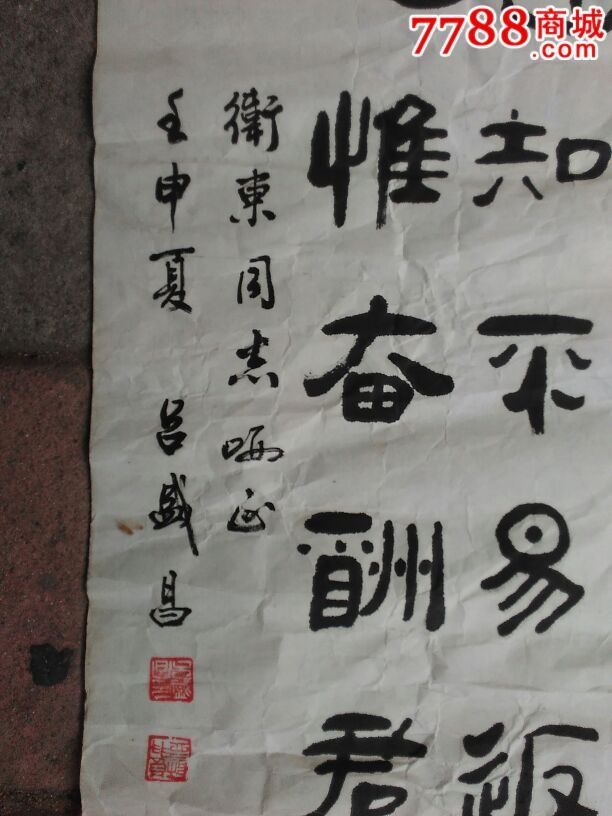 7788商城
.com
知不易返
惟奋酬君
衛東同志哂正
壬申夏 吕盛昌